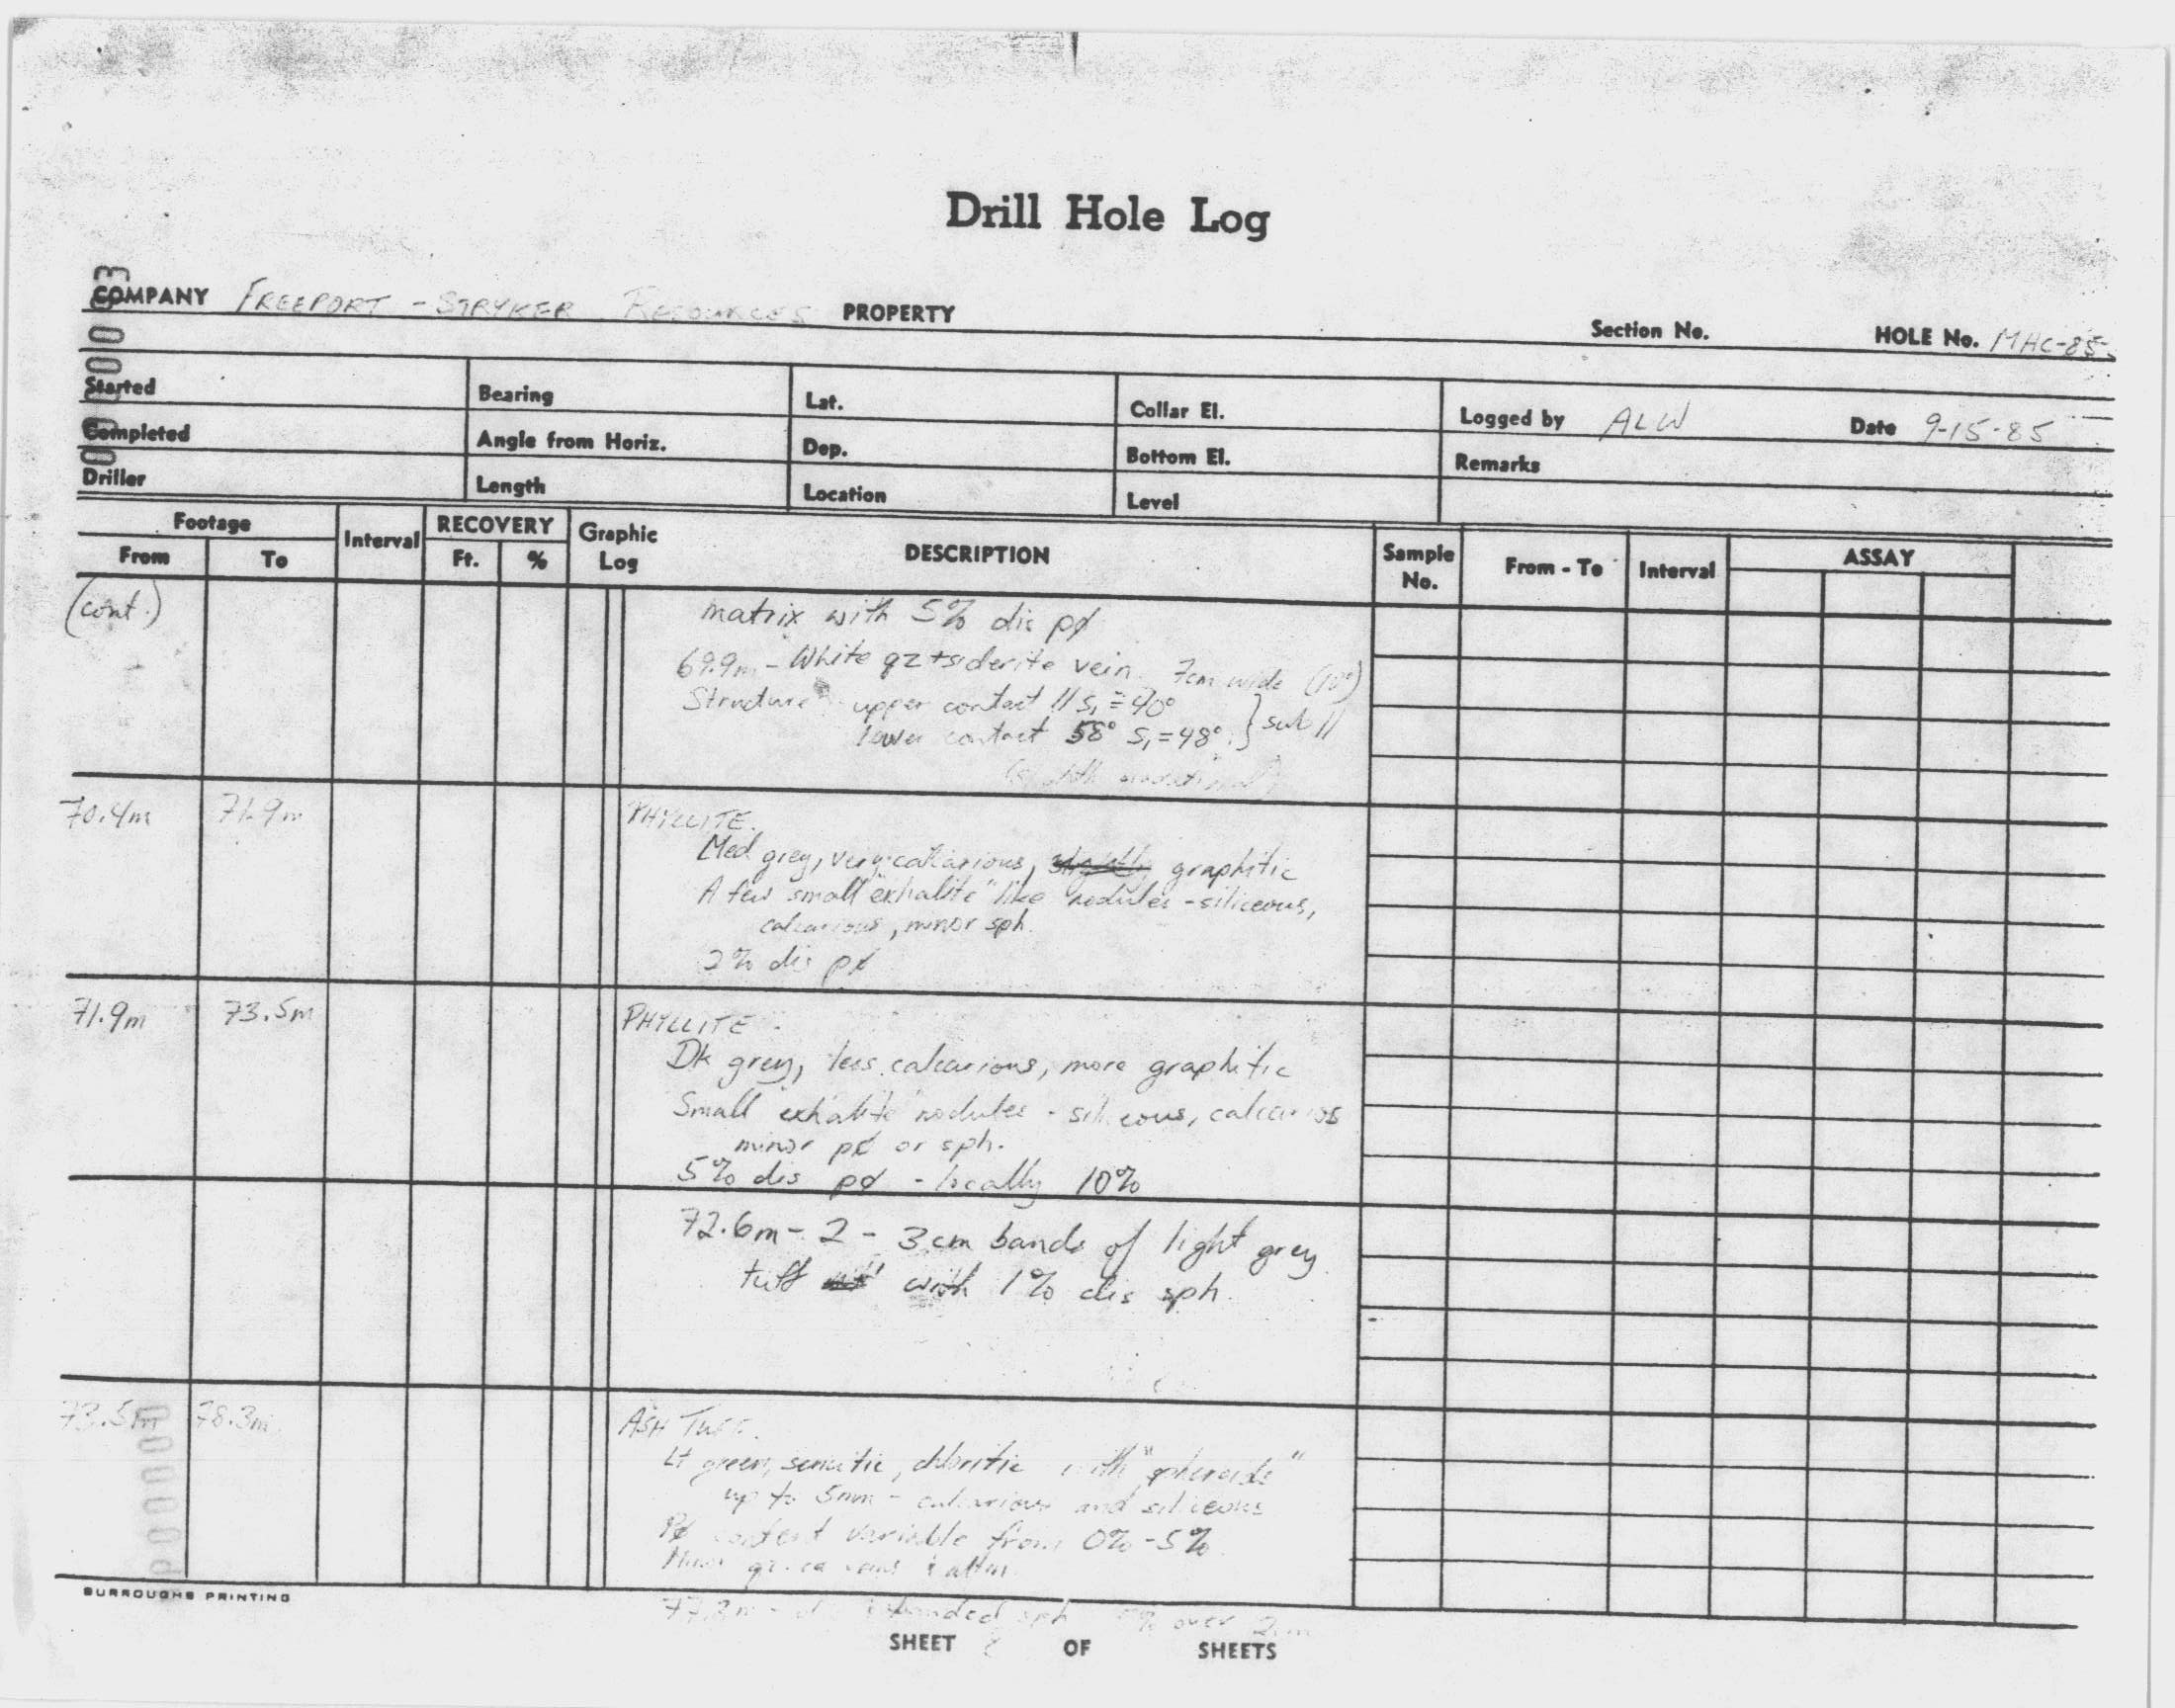 Drill Hole Log
COMPANY FREEPORT - STRYKER RESOURCES PROPERTY Section No. HOLE No. MHC-85-
Started Bearing Lat. Collar El. Logged by ALW Date 9-15-85
Completed Angle from Horiz. Dep. Bottom El. Remarks
Driller Length Location Level
Footage Interval RECOVERY Graphic Log DESCRIPTION Sample No. From - To Interval ASSAY
From To Ft. %
(cont.) matrix with 5% dis pø
69.9m - White qz + siderite vein 7cm wide (10°)
Structure - upper contact // S₁ = 40°
lower contact 58° S₁ = 48° } sub //
70.4m 71.9m PHYLLITE.
Med grey, very calcarious, graphitic
A few small "exhalite" like nodules - siliceous,
calcarious, minor sph.
2% dis pø
71.9m 73.5m PHYLLITE.
Dk grey, less calcarious, more graphitic
Small "exhalite" nodules - siliceous, calcarios
minor pø or sph.
5% dis pø - locally 10%
72.6m - 2 - 3cm bands of light grey
tuff with 1% dis sph.
73.5m 78.3m ASH TUFF.
Lt green, sericitic, chloritic with "spheroids"
up to 5mm - calcarious and siliceous
Pø content variable from 0% - 5%
Minor qz
77.3m - sph over
BURROUGHS PRINTING
SHEET OF SHEETS